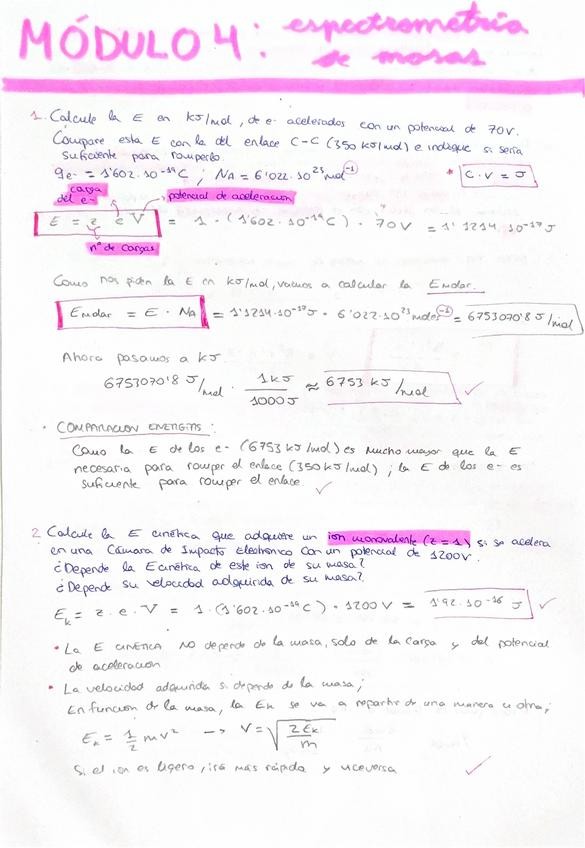 MÓDULO 4: espectrometría
de masas
1. Calcule la E en kJ/mol, de e- acelerados con un potencial de 70V.
Compare esta E con la del enlace C-C (350 kJ/mol) e indique si sería
suficiente para romperlo.
qe- = 1'602·10⁻¹⁹C ; NA = 6'022·10²³ mol⁻¹ * C·V = J
carga
del e- potencial de aceleración
E = z e V = 1 · (1'602·10⁻¹⁹C) · 70V = 1'1214·10⁻¹⁷ J
nº de cargas
Como nos piden la E en kJ/mol, vamos a calcular la Emolar.
Emolar = E · NA = 1'1214·10⁻¹⁷J · 6'022·10²³ moles⁻¹ = 6753070'8 J/mol
Ahora pasamos a kJ
6753070'8 J/mol · 1kJ/1000J ≈ 6753 kJ/mol ✓
· COMPARACIÓN ENERGÍAS:
Como la E de los e- (6753 kJ/mol) es mucho mayor que la E
necesaria para romper el enlace (350 kJ/mol) ; la E de los e- es
suficiente para romper el enlace. ✓
2. Calcule la E cinética que adquiere un ion monovalente (z=1) si se acelera
en una Cámara de Impacto Electrónico con un potencial de 1200V.
¿Depende la Ecinética de este ion de su masa?
¿Depende su velocidad adquirida de su masa?
Ek = z · e · V = 1 · (1'602·10⁻¹⁹C) · 1200V = 1'92·10⁻¹⁶ J ✓
• La E CINÉTICA NO depende de la masa, solo de la carga y del potencial
de aceleración
• La velocidad adquirida si depende de la masa;
En función de la masa, la Ek se va a repartir de una manera u otra;
Ek = 1/2 mv² → V = √(2Ek/m)
Si el ion es ligero, irá más rápido y viceversa ✓